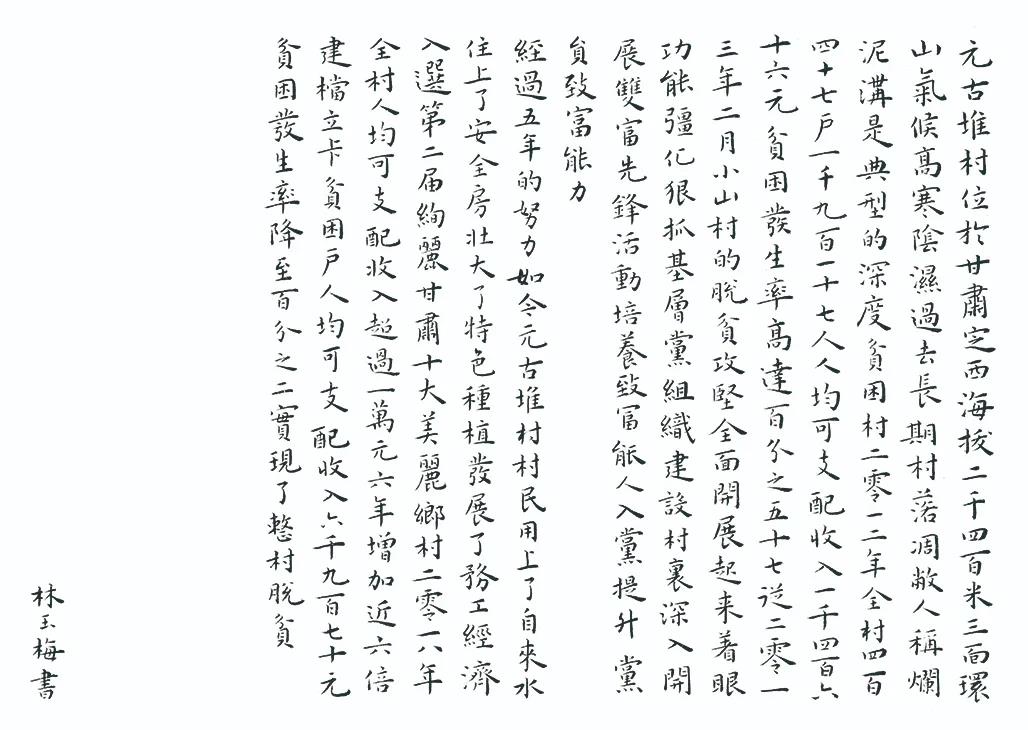 元古堆村位於甘肅定西海拔二千四百米三面環
山氣候高寒陰濕過去長期村落凋敝人稱爛
泥溝是典型的深度貧困村二零一二年全村四百
四十七戶一千九百一十七人人均可支配收入一千四百六
十六元貧困發生率高達百分之五十七從二零一
三年二月小山村的脫貧攻堅全面開展起来着眼
功能彊化狠抓基層黨組織建設村裏深入開
展雙富先鋒活動培養致富能人入黨提升黨
員致富能力
經過五年的努力如今元古堆村村民用上了自來水
住上了安全房壯大了特色種植發展了務工經濟
入選第二届絢麗甘肅十大美麗鄉村二零一八年
全村人均可支配收入超過一萬元六年增加近六倍
建檔立卡貧困戶人均可支配收入六千九百七十元
貧困發生率降至百分之二實現了整村脫貧
林玉梅書